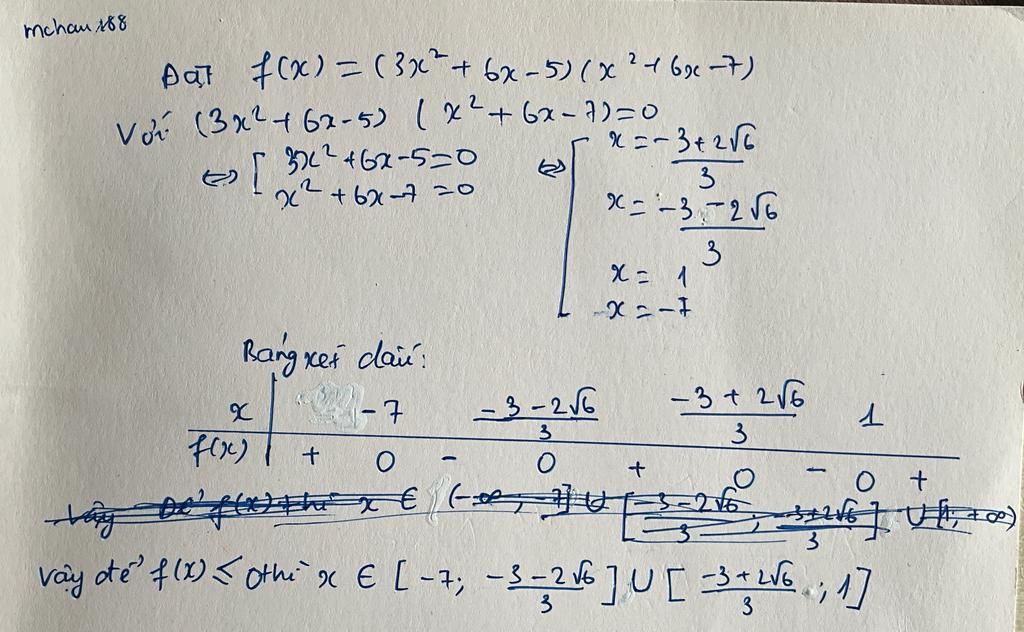 mchau188
Đặt f(x) = (3x² + 6x - 5)(x² + 6x - 7)
Với (3x² + 6x - 5) (x² + 6x - 7) = 0
⇔ [ 3x² + 6x - 5 = 0
x² + 6x - 7 = 0
⇔ [ x = -3 + 2√6 / 3
x = -3 - 2√6 / 3
x = 1
x = -7
Bảng xét dấu:
x | -7 (-3 - 2√6)/3 (-3 + 2√6)/3 1
f(x) | + 0 - 0 + 0 - 0 +
Vậy để f(x) thì x ∈ (-∞; -7] ∪ [(-3 - 2√6)/3 ; (-3 + 2√6)/3] ∪ [1; +∞)
Vậy để f(x) ≤ 0 thì x ∈ [-7; (-3 - 2√6)/3] ∪ [(-3 + 2√6)/3 ; 1]